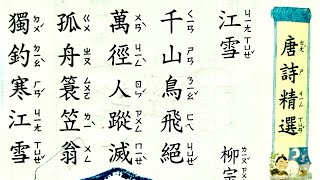 唐詩精選
江雪
柳宗
千山鳥飛絕
萬徑人蹤滅
孤舟簑笠翁
獨釣寒江雪